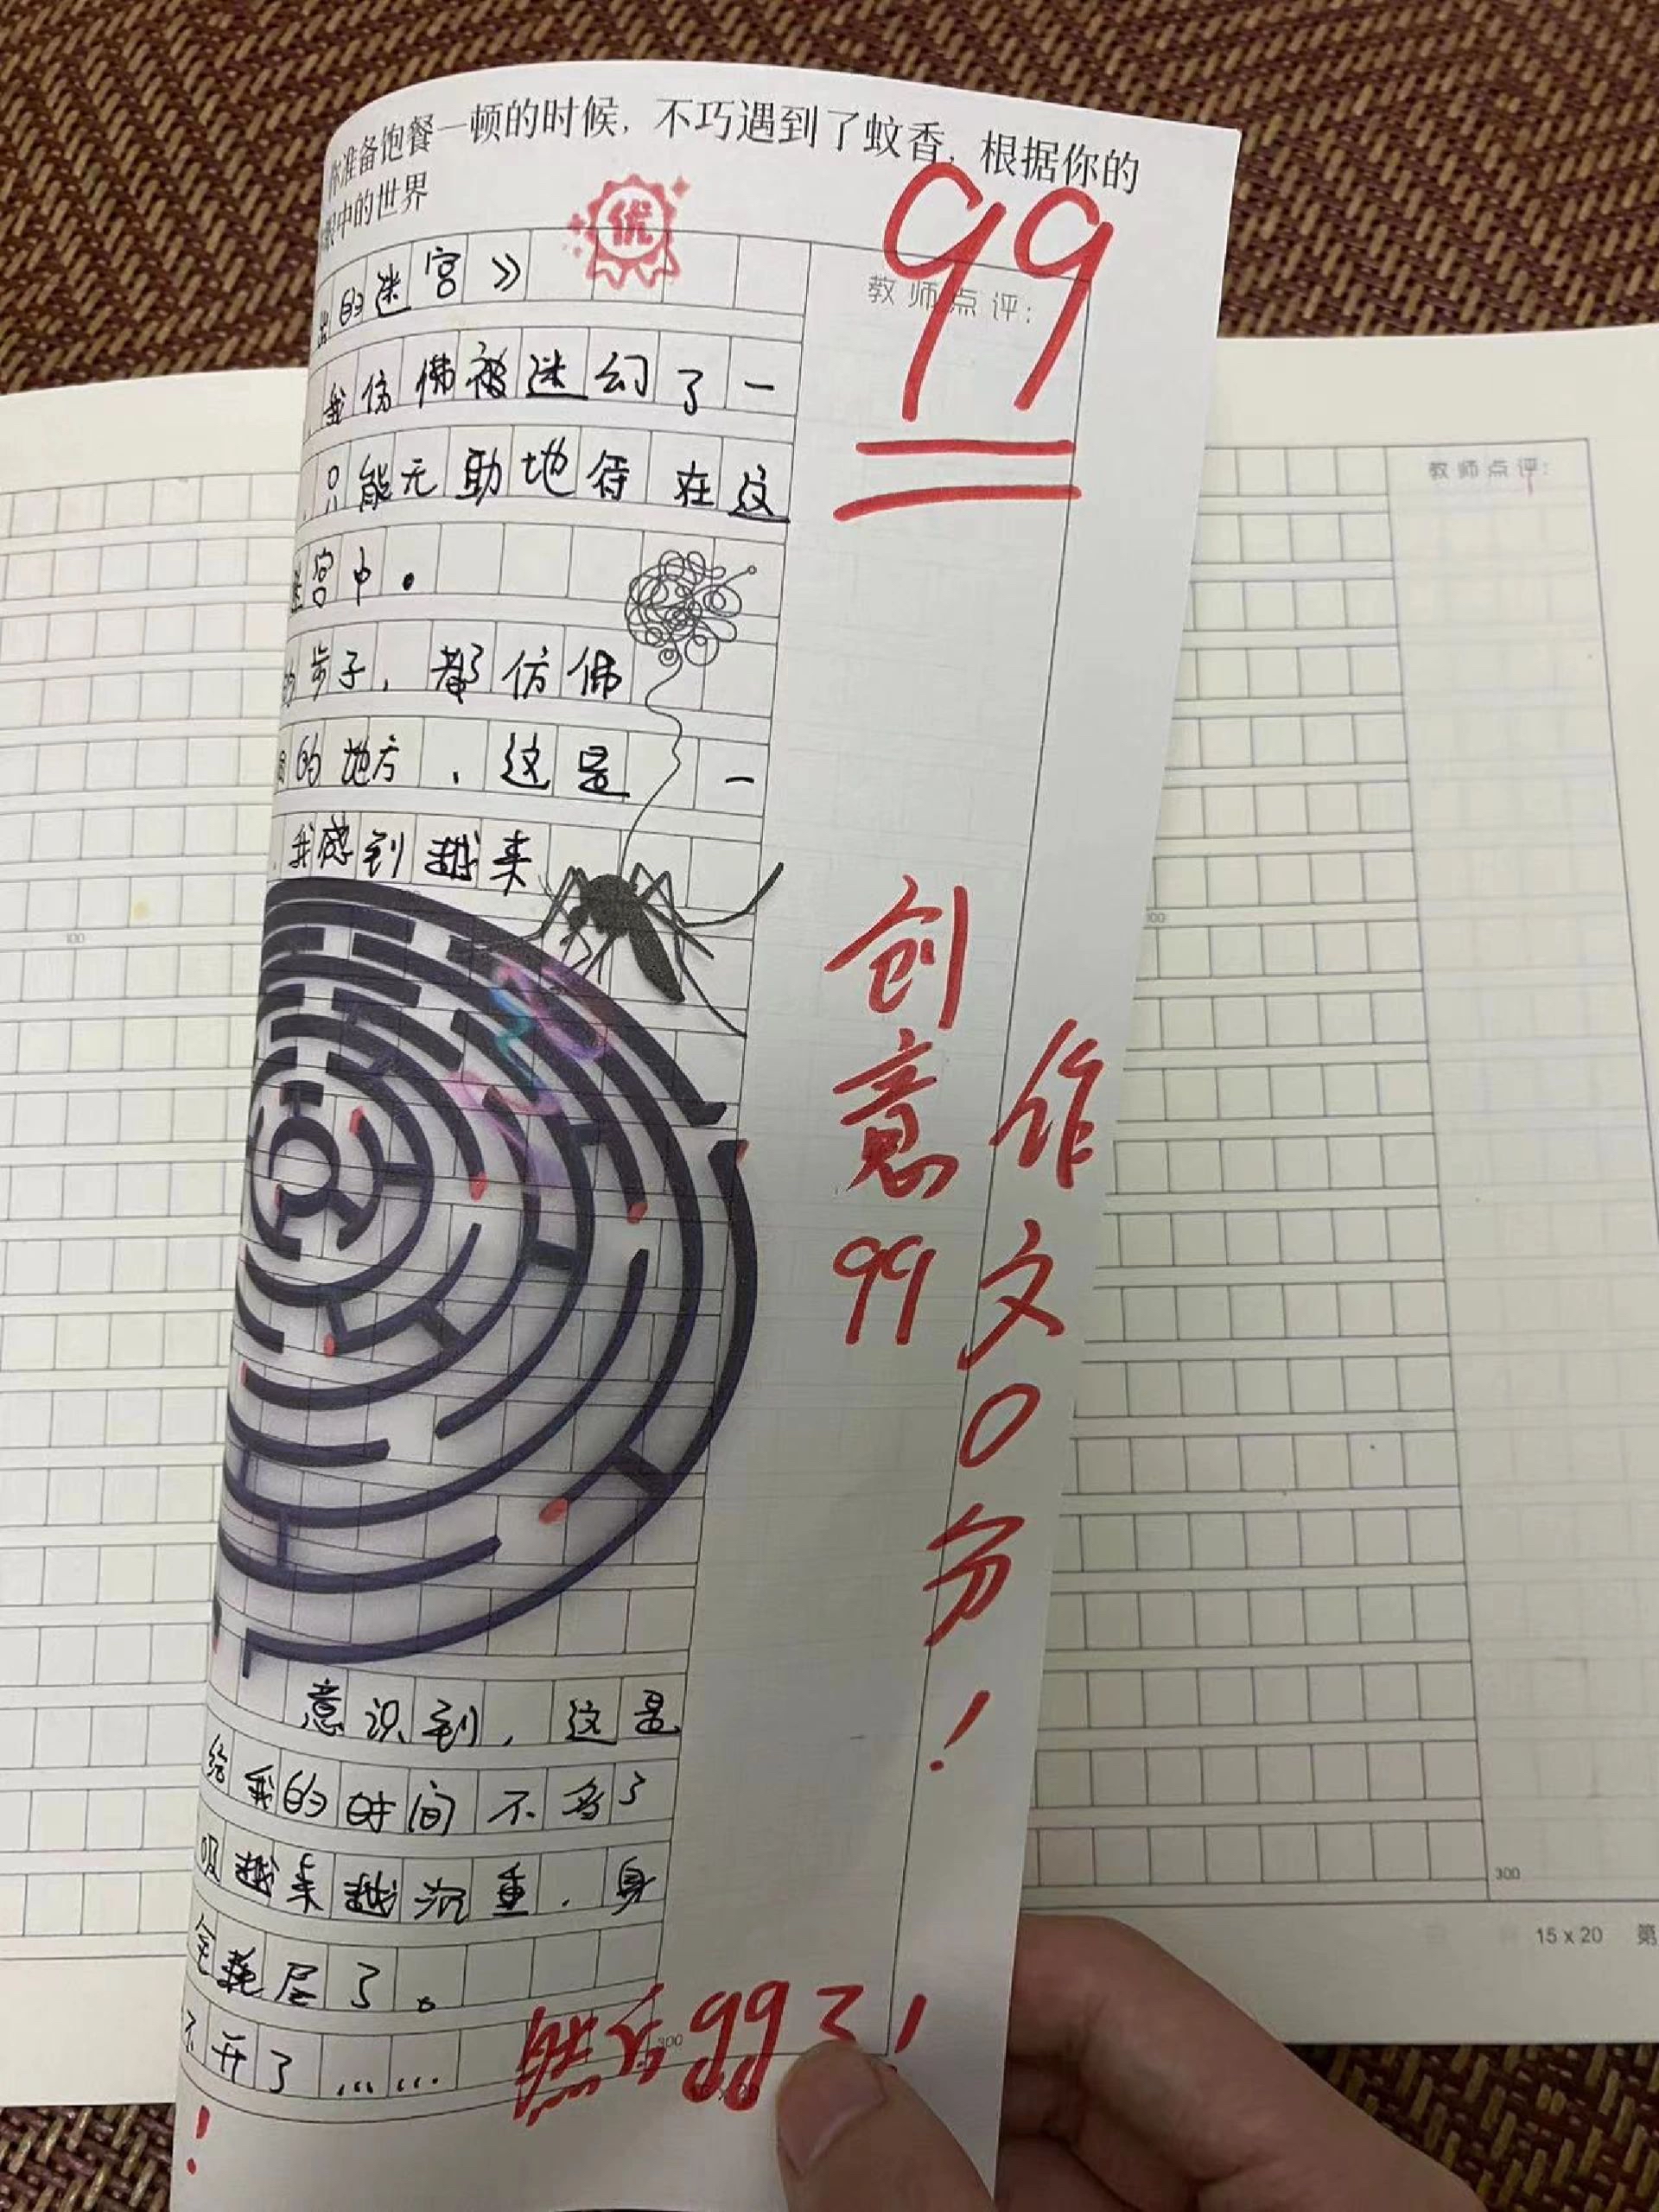 你准备饱餐一顿的时候，不巧遇到了蚊香，根据你的
眼中的世界
优
99
教师点评：
的迷宫》
我仿佛被迷幻了一
只能无助地待在这
迷宫中。
的步子，都仿佛
的地方，这是一
我感到越来
意识到，这是
给我的时间不多了
吸越来越沉重，身
全耗尽了。
不开了……
创意99
作文0分！
然后99了！
！
300
教师点评：
100
100
300
15×20 第